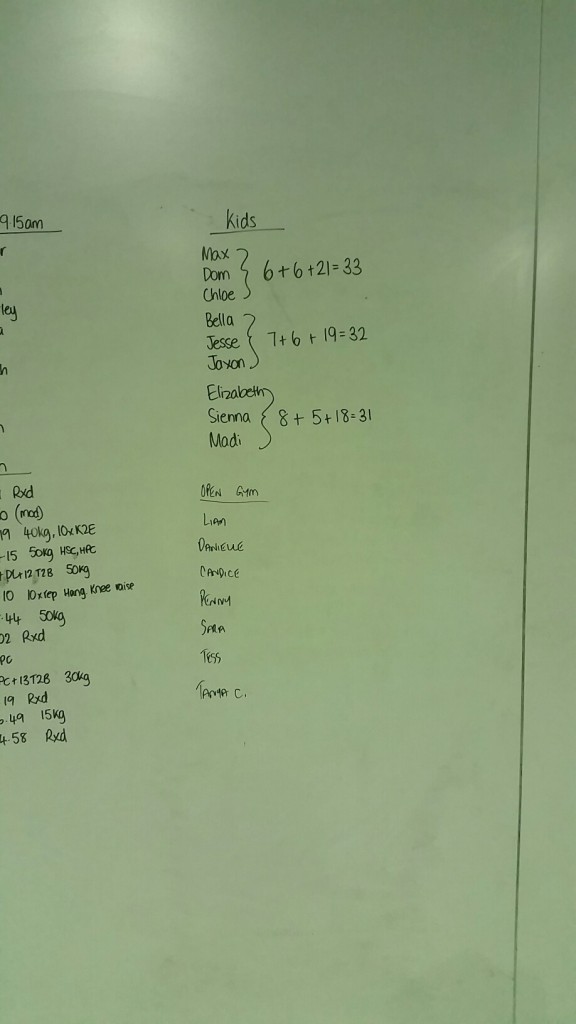 9:15am
r
ley
a
h
n
n
Rxd
0 (mod)
19 40kg, 10xK2E
-15 50kg HSC, HPC
+DL+12 T2B 50kg
10 10xrep Hang Knee raise
.44 50kg
02 Rxd
PC
PC+13T2B 30kg
19 Rxd
.49 15kg
4.58 Rxd
Kids
Max
Dom
Chloe
6+6+21=33
Bella
Jesse
Jaxon
7+6+19=32
Elizabeth
Sienna
Madi
8+5+18=31
OPEN GYM
LIAM
DANIELLE
CANDICE
PENNY
SARA
TESS
TANYA C.